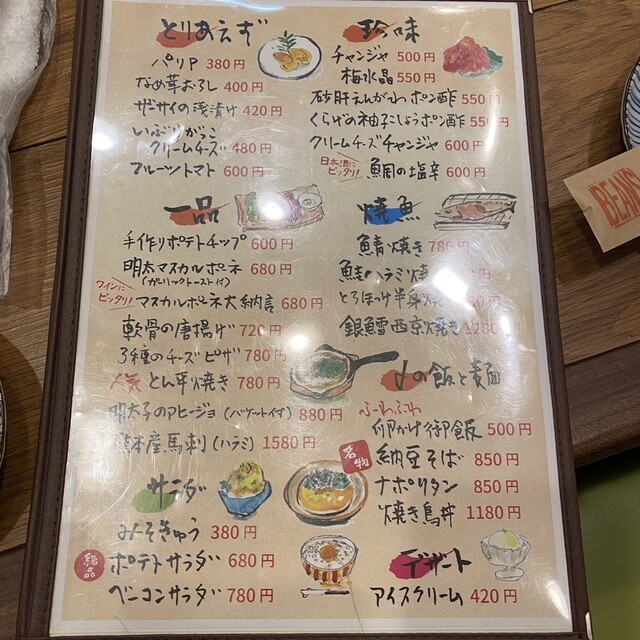 とりあえず
パリP 380円
なめ茸おろし 400円
ザーサイの浅漬け 420円
いぶりがっこ
クリームチーズ 480円
フルーツトマト 600円
珍味
チャンジャ 500円
梅水晶 550円
砂肝えんがわポン酢 550円
くらげの柚子こしょうポン酢 550円
クリームチーズチャンジャ 600円
日本酒に
ピッタリ!
鯛の塩辛 600円
一品
手作りポテトチップ 600円
明太マスカルポーネ 680円
(ガーリックトースト付)
ワインに
ピッタリ!
マスカルポーネ大納言 680円
軟骨の唐揚げ 720円
3種のチーズピザ 780円
人気 とん平焼き 780円
明太子のアヒージョ (バゲット付) 880円
熊本産馬刺 (ハラミ) 1580円
焼魚
鯖焼き 780円
鮭ハラミ焼 円
とろほっけ半身焼 円
銀鱈西京焼き 1280円
〆の飯と麺
ふーわふわ
卵かけ御飯 500円
名物
納豆そば 850円
ナポリタン 850円
焼き鳥丼 1180円
サラダ
みそきゅう 380円
絶品
ポテトサラダ 680円
ベーコンサラダ 780円
デザート
アイスクリーム 420円
BEANS